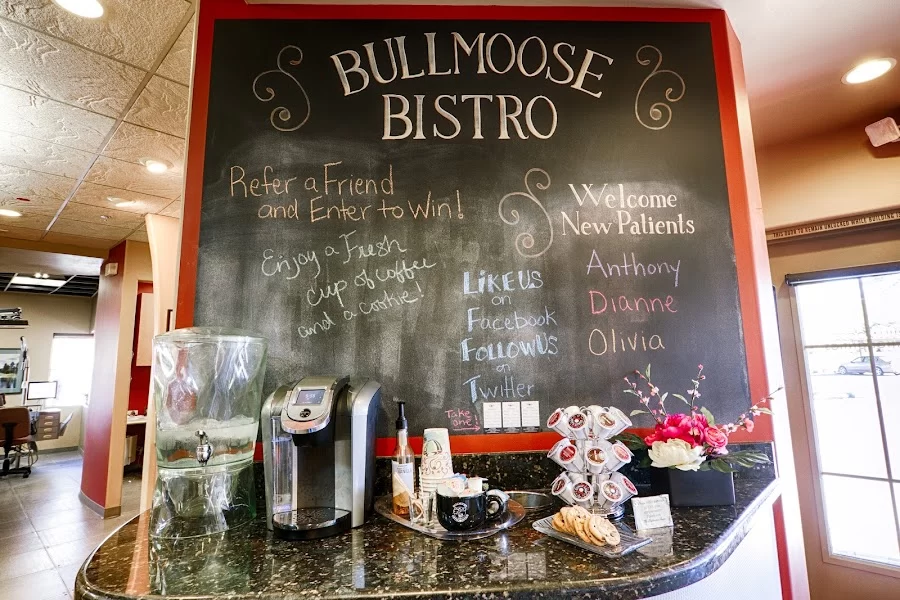 BULLMOOSE
BISTRO
Refer a Friend
and Enter to Win!
Enjoy a Fresh
cup of coffee
and a cookie!
LiKE US
on
Facebook
FOLLOW US
on
Twitter
Take
one!
Welcome
New Patients
Anthony
Dianne
Olivia